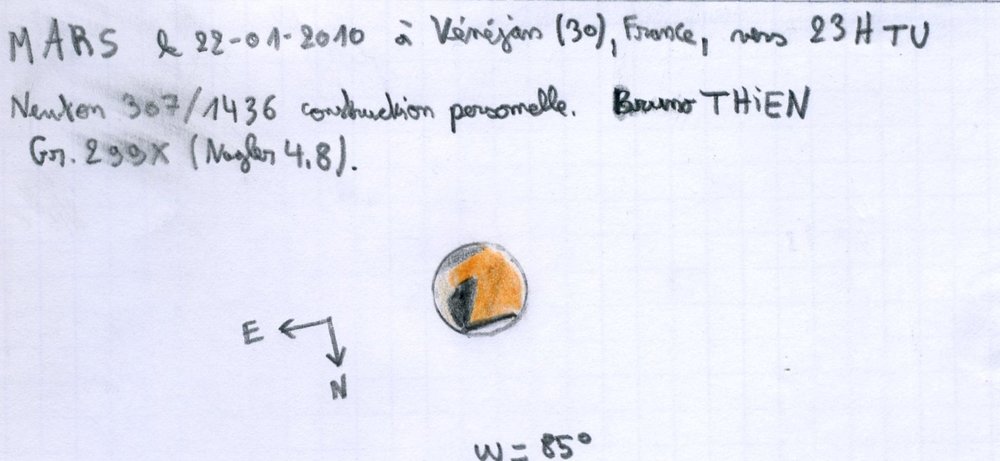 MARS le 22-01-2010 à Vénéjan (30), France, vers 23H TU
Newton 307/1436 construction personnelle. Bruno THiEN
Gr. 299X (Nagler 4.8).
E
N
W = 85°